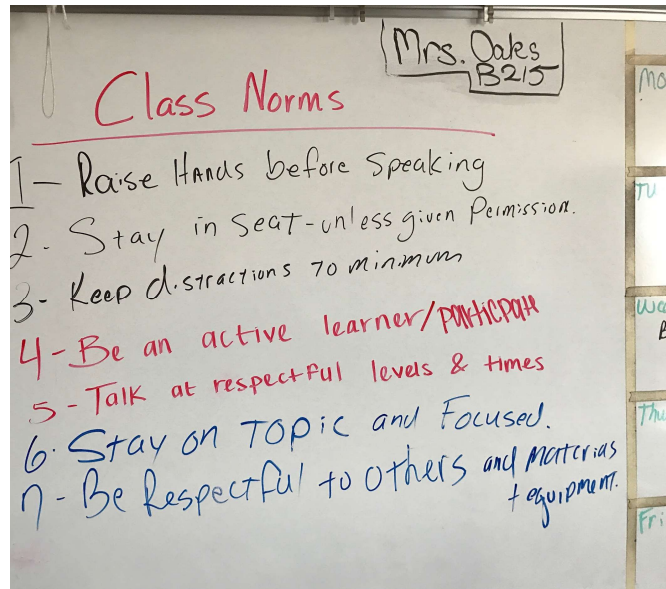 Mrs. Oaks
B215
Class Norms
1- Raise Hands before Speaking
2. Stay in Seat-unless given Permission.
3- Keep distractions to minimum
4-Be an active learner/particpate
5-Talk at respectful levels & times
6. Stay on Topic and Focused.
7-Be Respectful to others and materias
+ equipment.
Mo
TU
We
B
Thu
Fri